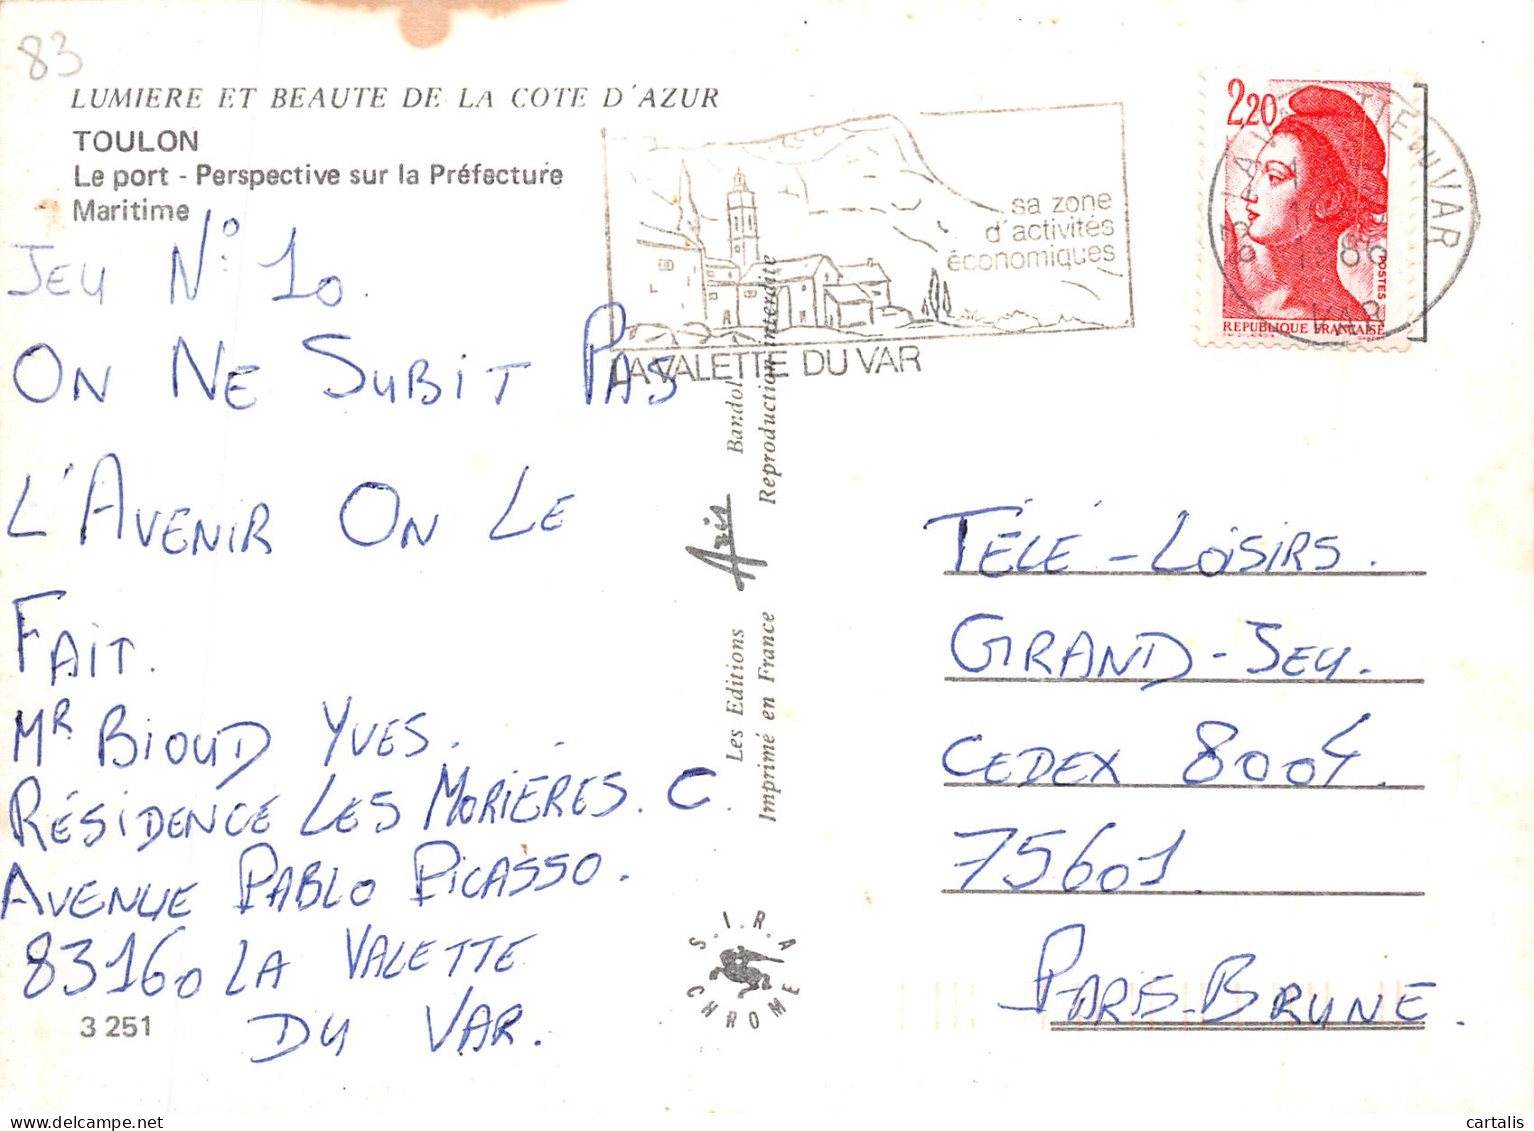 83
LUMIERE ET BEAUTE DE LA COTE D'AZUR
TOULON
Le port - Perspective sur la Préfecture
Maritime
JEU N° 10.
ON NE SUBIT PAS
L'AVENIR ON LE
FAIT.
MR BIOUD YVES.
RÉSIDENCE LES MORIÈRES. C.
AVENUE PABLO PICASSO.
83160 LA VALETTE
DU VAR.
3 251
sa zone
d'activités
économiques
LA VALETTE DU VAR
2,20
POSTES
REPUBLIQUE FRANÇAISE
83 LA VALETTE DU VAR
1986
VAR
Les Editions Aris Bandol
Imprimé en France Reproduction interdite
S.I.R.A
CHROME
TÉLÉ-LOISIRS.
GRAND-JEU.
CEDEX 8004.
75601.
PARIS-BRUNE.
cartalis